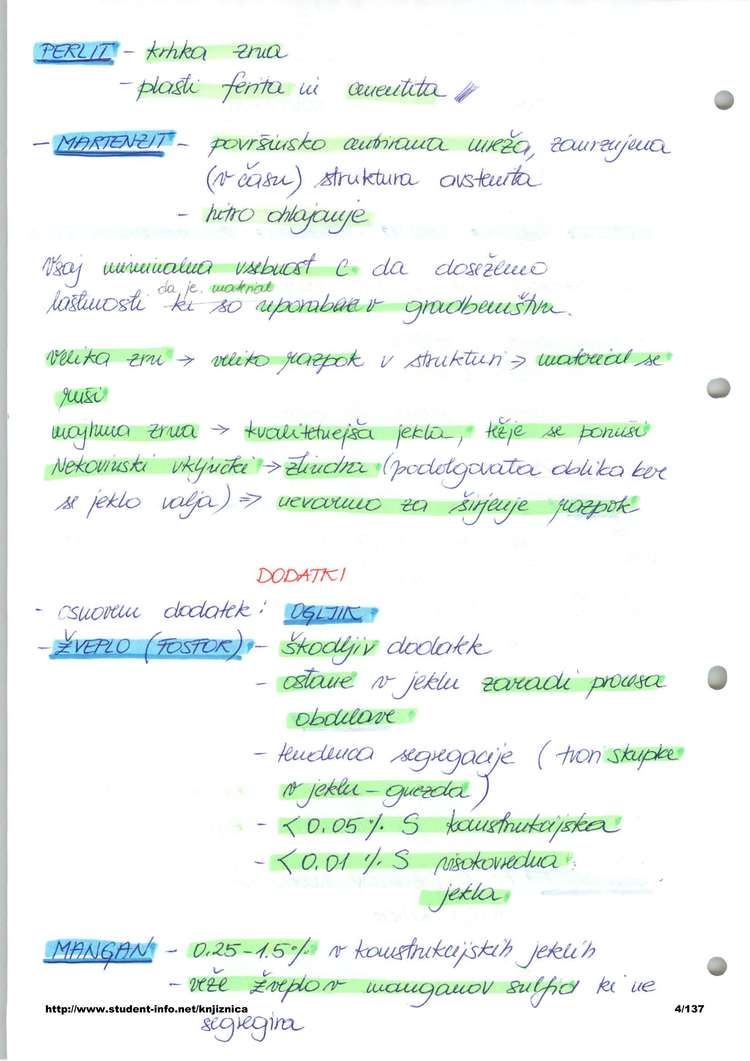 PERLIT - krhka zrna
- plasti ferita in cementita
- MARTENZIT - površinsko centrirana mreža, zamrznjena
(v času) struktura avstenita
- hitro ohlajanje
Vsaj minimalna vsebnost C da dosežemo
da je material
lastnosti ki so uporabne v gradbeništvu.
velika zrna → veliko razpok v strukturi → material se
ruši
majhna zrna → kvalitetnejša jekla, težje se poruši
Nekovinski vključki → žlindra (podolgovata oblika ker
se jeklo valja) ⇒ nevarno za širjenje razpok
DODATKI
- osnoven dodatek: OGLJIK
- ŽVEPLO (FOSFOR) - škodljiv dodatek
- ostane v jeklu zaradi procesa
obdelave
- tendenca segregacije (tvori skupke
v jeklu - gnezda)
- < 0.05 % S konstrukcijska
- < 0.01 % S visokovredna
jekla
MANGAN - 0.25 - 1.5 % v konstrukcijskih jeklih
- veže žveplo v manganov sulfid ki ne
http://www.student-info.net/knjiznica 4/137
segregira